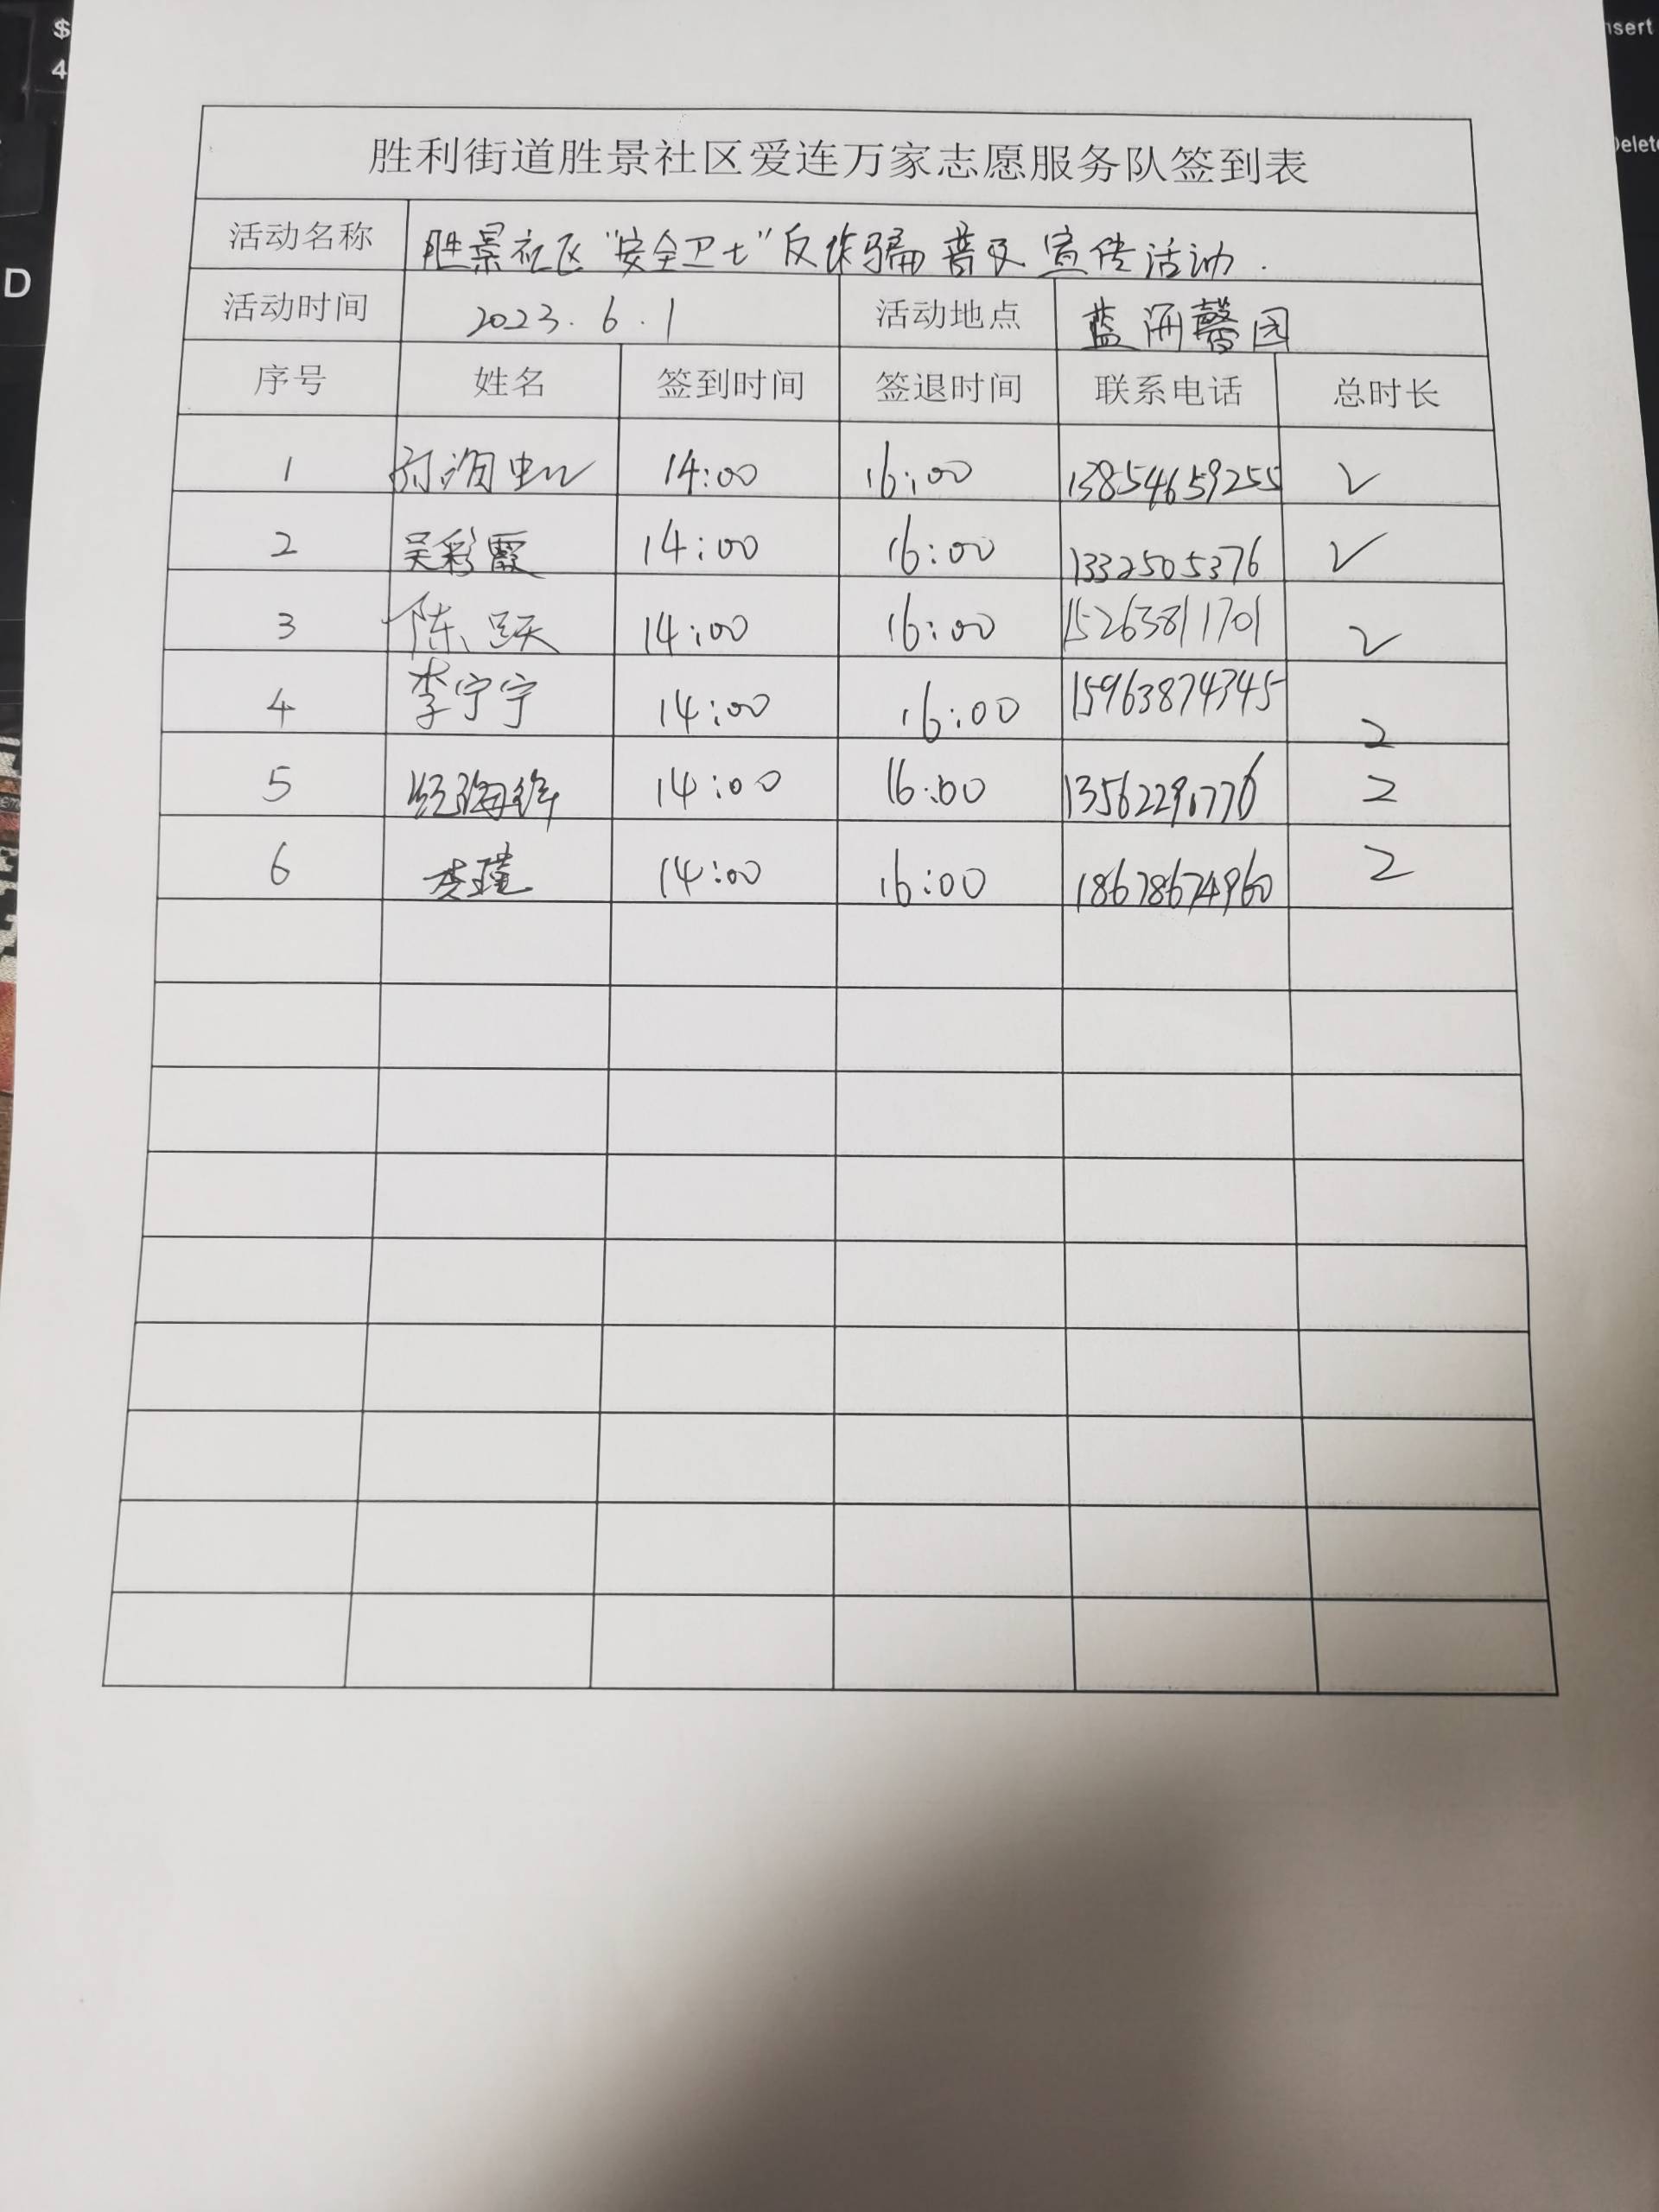 $
4
D
nsert
Delete
胜利街道胜景社区爱连万家志愿服务队签到表
活动名称 胜景社区“安全卫士”反诈骗普及宣传活动.
活动时间 2023.6.1 活动地点 蓝海馨园
序号 姓名 签到时间 签退时间 联系电话 总时长
1 14:00 16:00 13854659255 2
2 吴彩霞 14:00 16:00 1332505376 2
3 陈跃 14:00 16:00 15263811701 2
4 李宁宁 14:00 16:00 15963874345 2
5 14:00 16:00 2
6 李瑾 14:00 16:00 18678674960 2